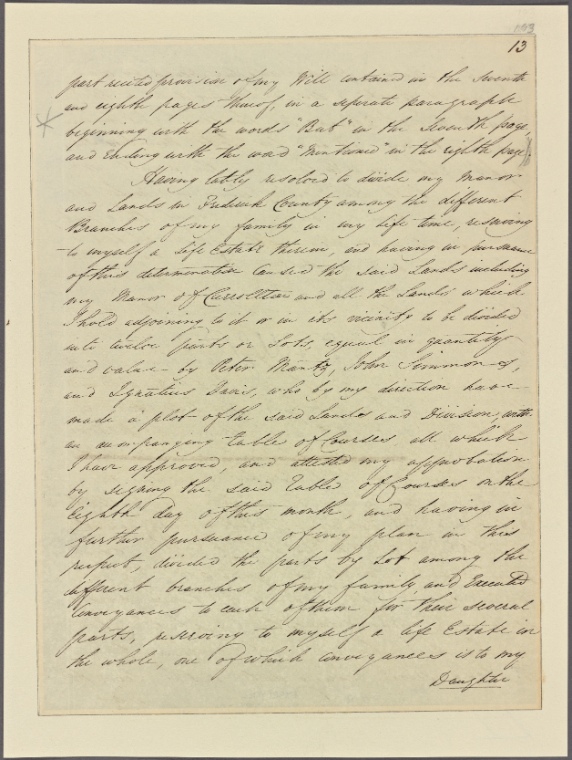 103
13
part recited provision of my Will contained in the Seventh
and eighth pages thereof, in a seperate paragraph
beginning with the words "But" in the Seventh page,
and Ending with the word "mentioned" in the eighth page.
Having lately resolved to divide my Manor
and Lands in Frederick County among the different
Branches of my family in my life time, reserving
to myself a life Estate therein, and having in pursuance
of this determination caused the said Lands including
my Manor of Carrollton and all the Lands which
I hold adjoining to it or in its vicinity to be divided
into twelve parts or Lots, equal in quantity
and value by Peter Mantz, John Simmons,
and Ignatius Davis, who by my direction have
made a plot of the said Lands and Division, with
an accompanying table of Courses all which
I have approved, and attested my approbation
by signing the said Table of Courses on the
Eighth day of this month, and having in
further pursuance of my plan in this
respect, divided the parts by Lot among the
different branches of my family, and Executed
Conveyances to each of them for their several
parts, reserving to myself a life Estate in
the whole, one of which conveyances is to my
Daughter